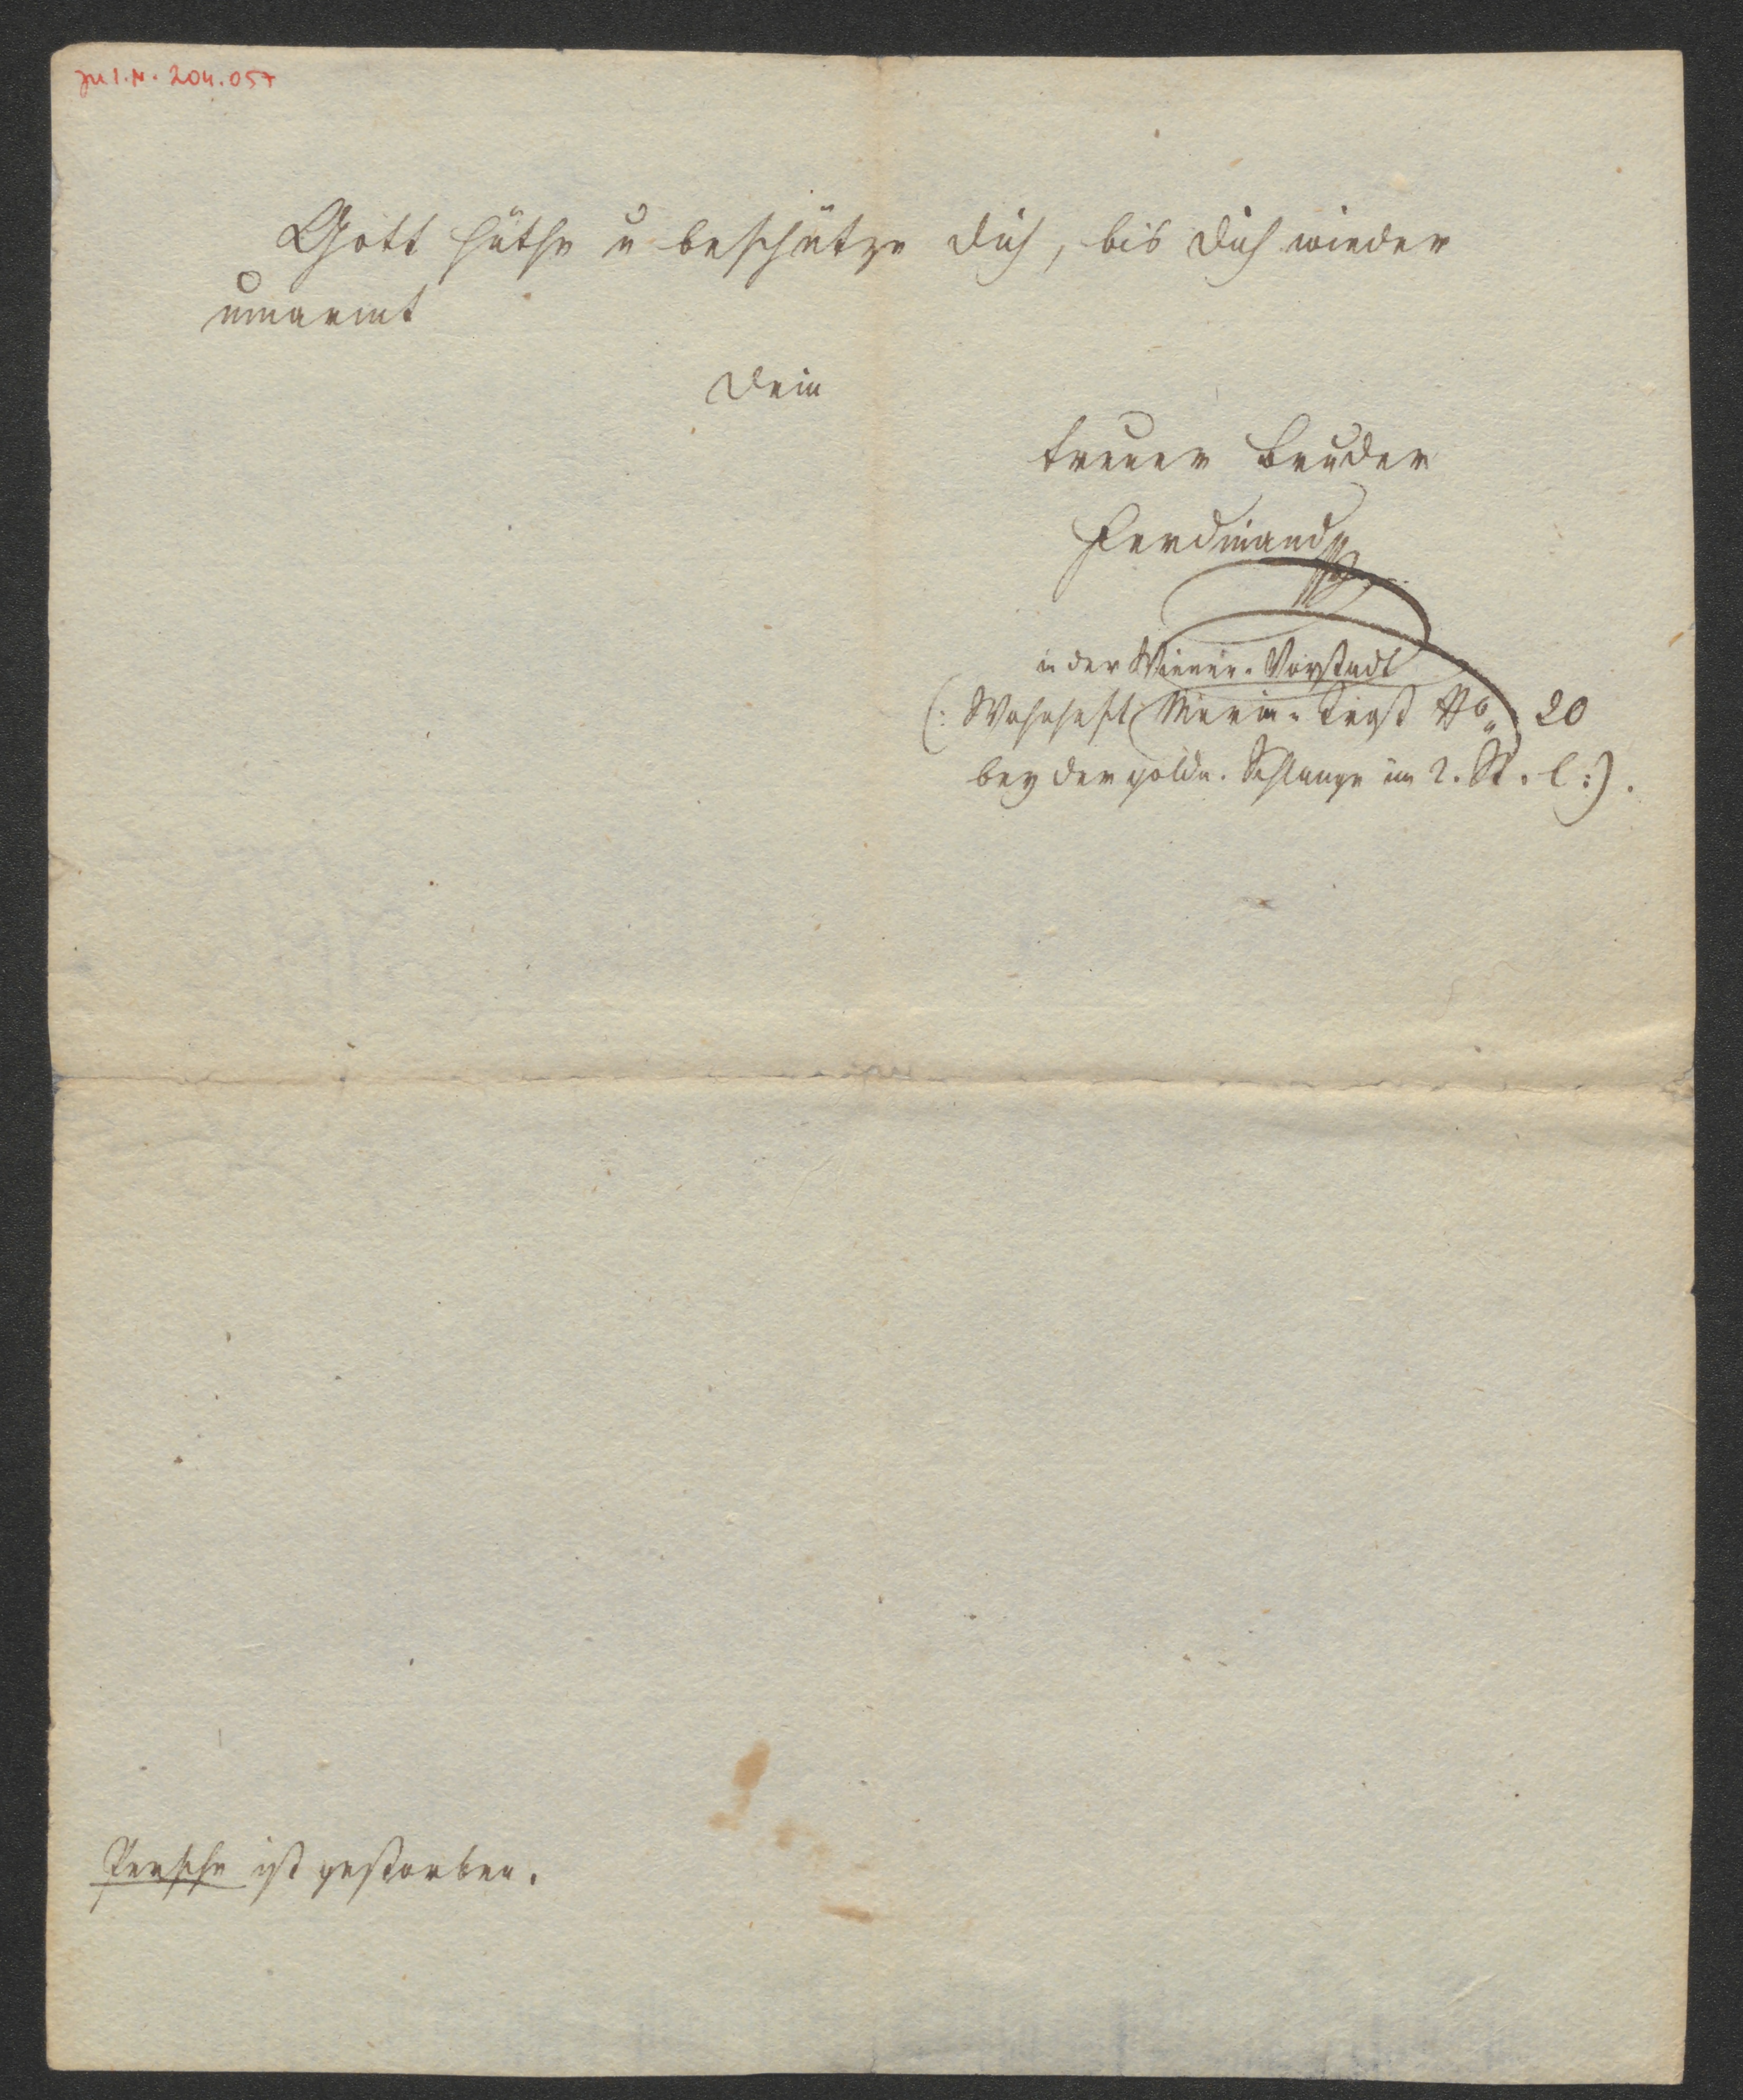 zu I.N. 204.057
Gott hüthe u beschütze dich, bis dich wieder
umarmt
Dein
treuer Bruder
Ferdinand
in der Wiener-Vorstadt
(: Wohnhaft No 20
bey der goldn. Schlange im 2. St. :).
ist gestorben.